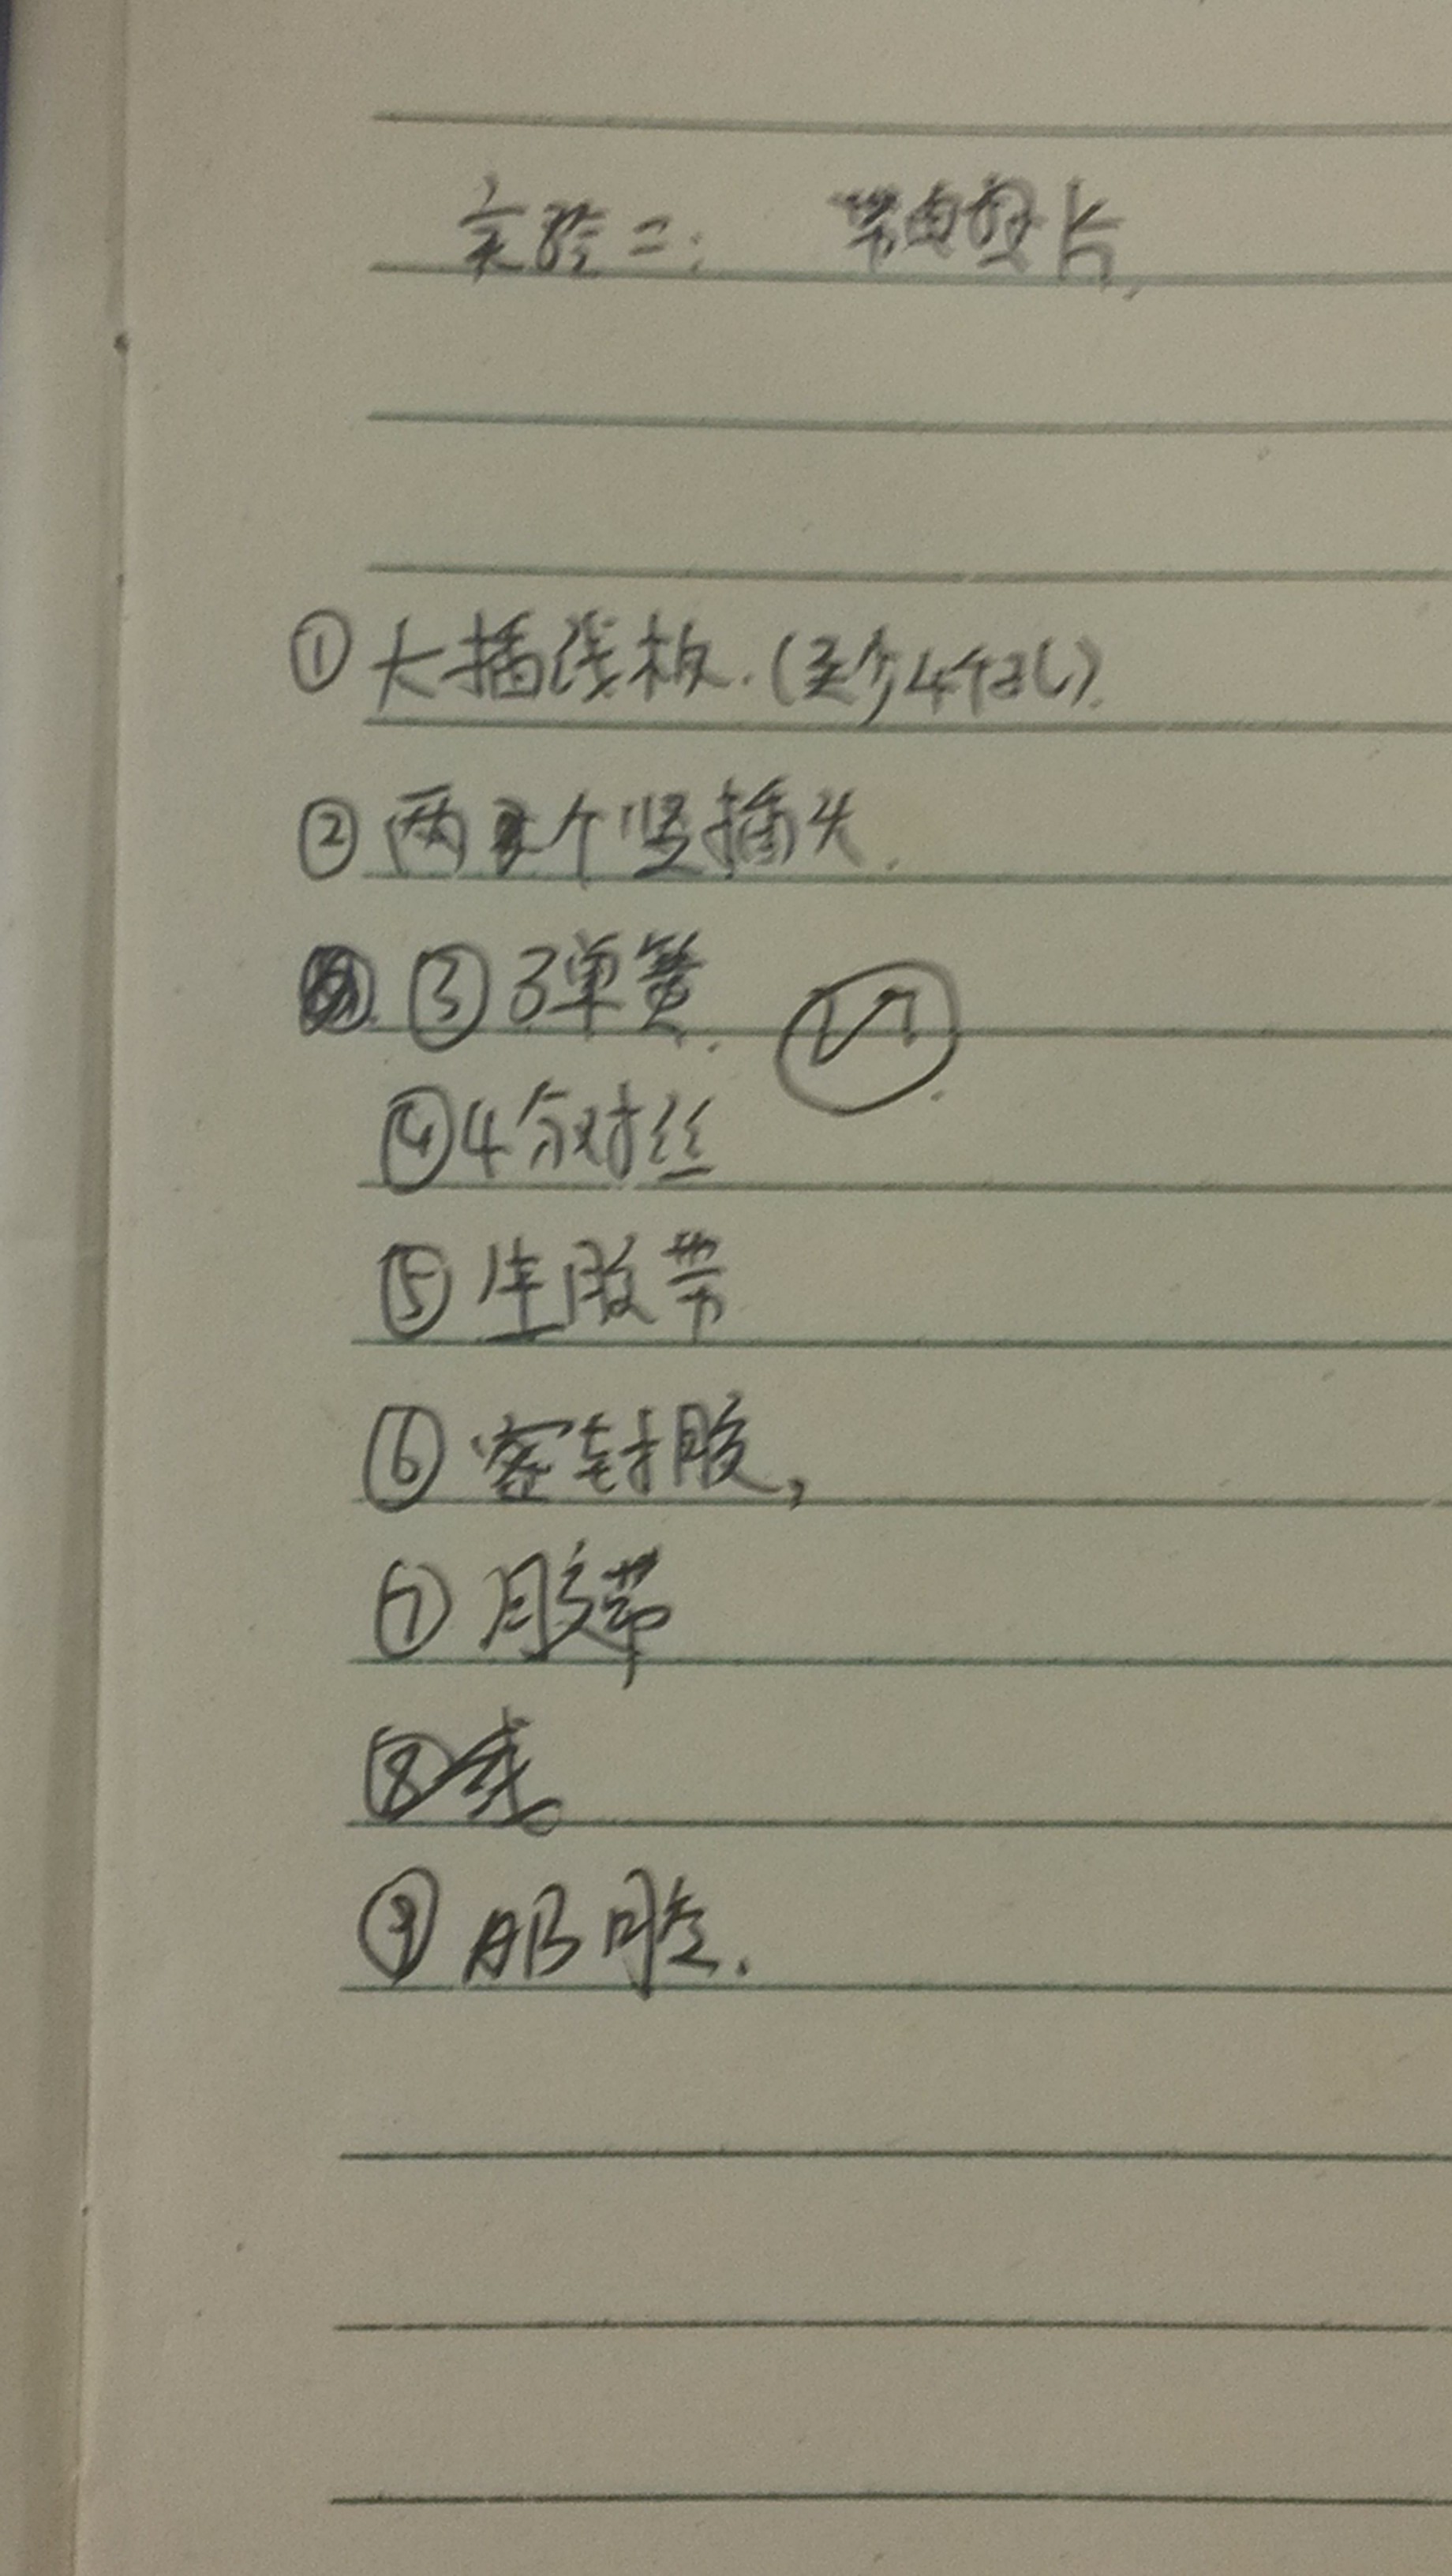 实验二： 带电垫片，
①大插线板.(至少4个孔).
②两个竖插头.
③3弹簧.
④4分对丝
⑤生胶带
⑥密封胶，
⑦胶带
⑧线。
⑨AB胶.